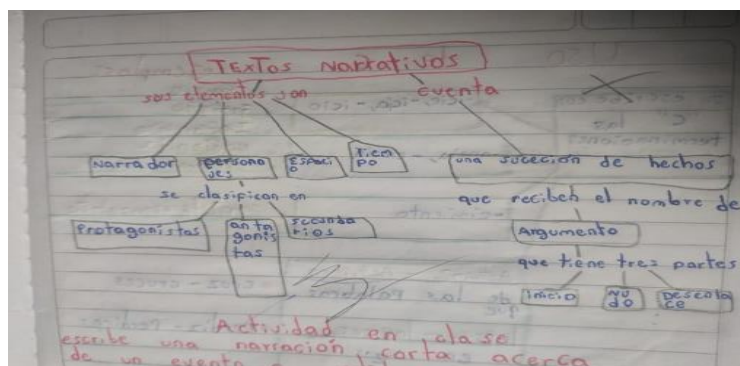 TEXTOS NARRATIVOS
sus elementos son
cuenta
Narrador
persona
jes
Espaci
o
Tiem
po
una suceción de hechos
se clasifican en
que reciben el nombre de
Protagonistas
an ta
gonis
tas
secunda
rios
Argumento
que tiene tres partes
Inicio
Nu
do
Desenla
ce
Actividad en clase
escribe una narración corta acerca
de un evento